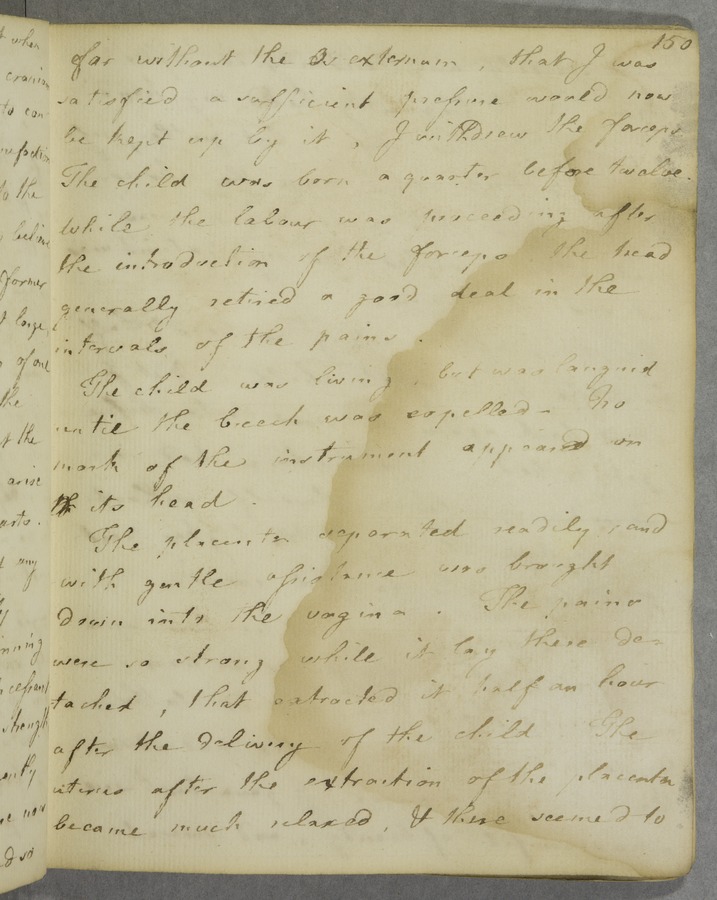 150
far without the Os externum, that I was
satisfied a sufficient pressure would now
be kept up by it, I withdrew the forceps
The child was born a quarter before twelve.
While the labour was proceeding after
the introduction of the forceps the head
generally retired a good deal in the
intervals of the pains.
The child was living, but was languid
until the breech was expelled - No
mark of the instrument appeared on
its head.
The placenta separated readily, and
with gentle assistance was brought
down into the vagina. The pains
were so strong while it lay there de=
tached, that extracted it half an hour
after the delivery of the child The
uterus after the extraction of the placenta
became much relaxed, & there seemed to